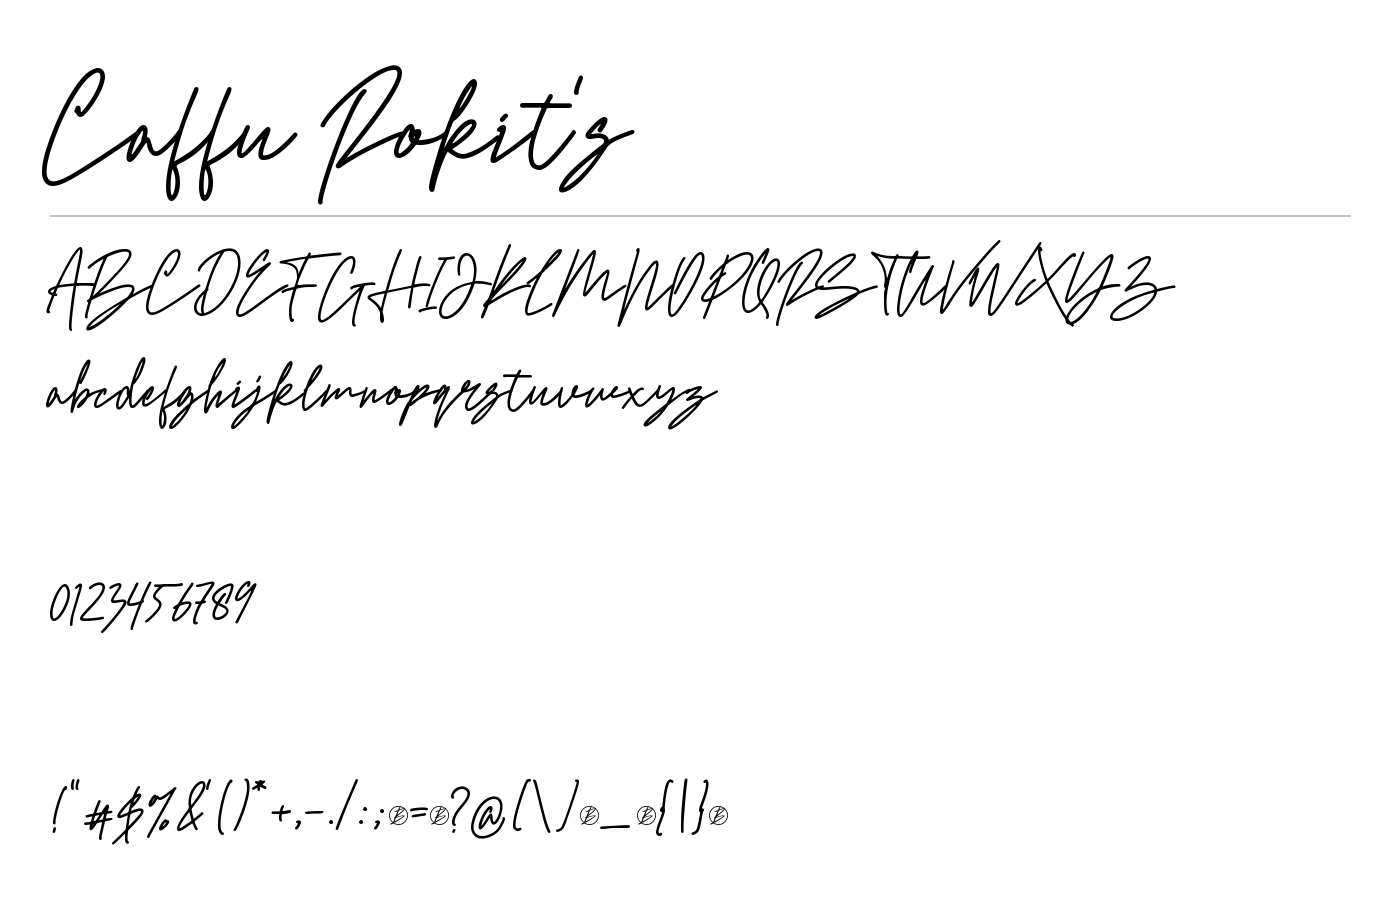 Caffu Rokit's
ABCDEFGHIJKLMNOPQRSTUVWXYZ
abcdefghijklmnopqrstuvwxyz
0123456789
!"#$%&'()*+,-./:;=?@[\]_{|}